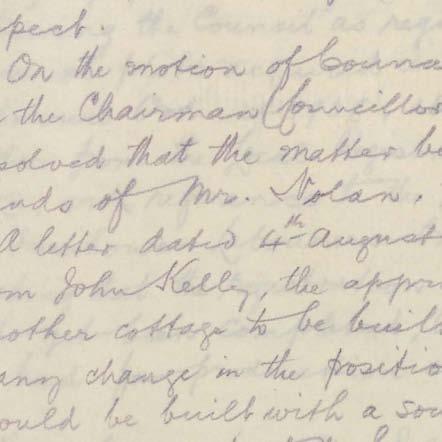 pect.
On the motion of Counc
the Chairman (Councillor
solved that the matter be
nds of Mr. Nolan.
A letter dated 4th August
om John Kelly, the appr
nother cottage to be built
any change in the positio
ould be built with a sou